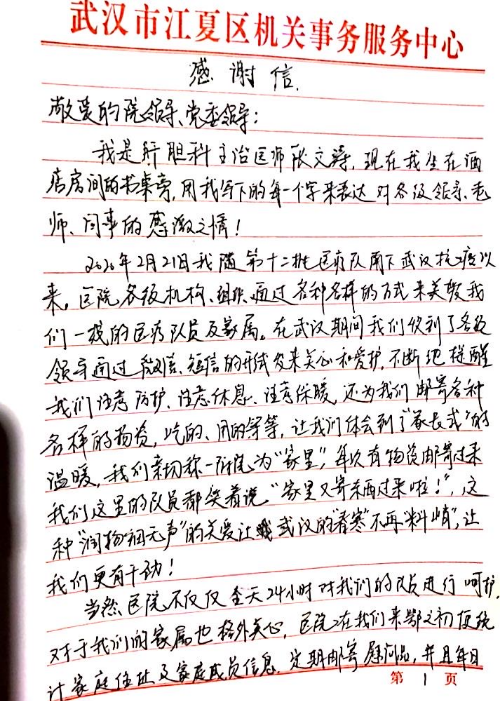 武汉市江夏区机关事务服务中心
感谢信
敬爱的院领导、党委领导：
我是肝胆科主治医师张文涛，现在我坐在酒
店房间的书桌旁，用我写下的每一个字来表达对各级领导、老
师、同事的感激之情！
2020年2月21日我随第十二批医疗队南下武汉抗疫以
来，医院各级机构、组织通过各种各样的方式来关爱我
们一线的医疗队员及家属。在武汉期间我们收到了各级
领导通过微信、短信的形式发来关心和爱护，不断地提醒
我们注意防护、注意休息、注意保暖，还为我们邮寄各种
各样的物资，吃的、用的等等，让我们体会到了“家长式”的
温暖，我们亲切称一附院为“家里”，每次有物资邮寄过来
我们这里的队员都笑着说“家里又寄东西过来啦！”，这
种“润物细无声”的关爱让武汉的“春寒”不再“料峭”，让
我们更有干劲！
当然医院不仅仅全天24小时对我们的队员进行呵护，
对于我们的家属也格外关心，医院在我们来鄂之初便统
计家庭住址及家庭成员信息，定期邮寄慰问品，并且每日
第 1 页